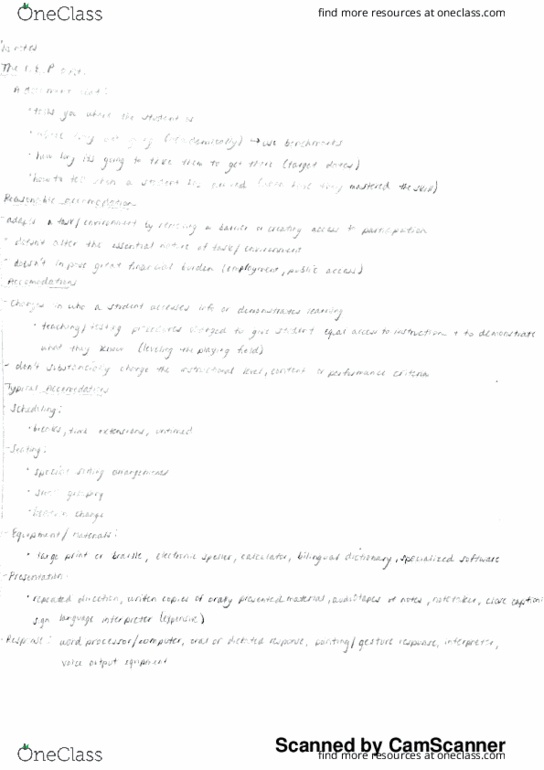 OneClass
find more resources at oneclass.com
notes
The I.E.P
A document
tells you where the student is
→ use benchmarks
how long it's going to take them to get there (target dates)
how to tell when a student (have they mastered the skill)
Reasonable accomodation
- adapts a task/environment by removing a barrier or creating access to participation
- doesn't alter the essential nature of task/environment
- doesn't impose great financial burden (employment, public access)
Accomodations
- changes in who a student accesses info or demonstrates learning
• teaching/testing procedures changed to give student equal access to instruction + to demonstrate
what they know (leveling the playing field)
- don't substantially change the instructional level, content or performance criteria
Typical Accomodations
- Scheduling:
• breaks, time extensions, untimed
- Seating:
• special seating arrangements
• grouping
• change
- Equipment/materials:
• large print or braille, electronic speller, calculator, bilingual dictionary, specialized software
- Presentation
• repeated direction, written copies of orally presented material, audiotapes of notes, notetaker, close caption
sign language interpreter (expensive)
- Response: word processor/computer, oral or dictated response, pointing/gesture response, interpreter,
voice output equipment
Scanned by CamScanner
OneClass
find more resources at oneclass.com